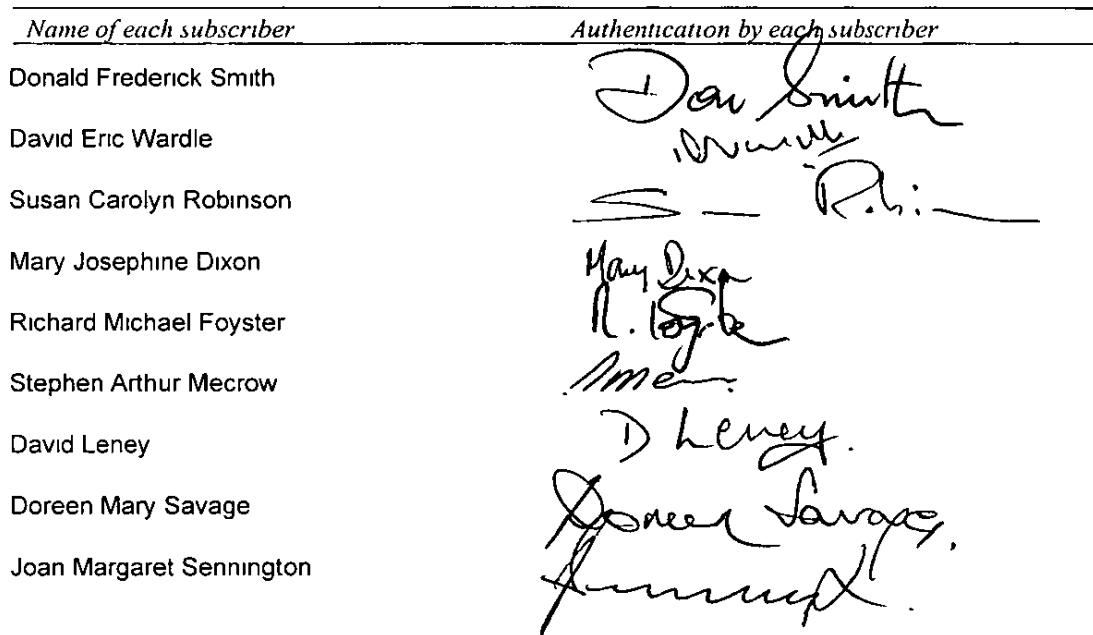 Name of each subscriber Authentication by each subscriber
Donald Frederick Smith Don Smith
David Eric Wardle
Susan Carolyn Robinson S Robin
Mary Josephine Dixon Mary Dixon
Richard Michael Foyster R. Foyster
Stephen Arthur Mecrow
David Leney D Leney.
Doreen Mary Savage Doreen Savage.
Joan Margaret Sennington